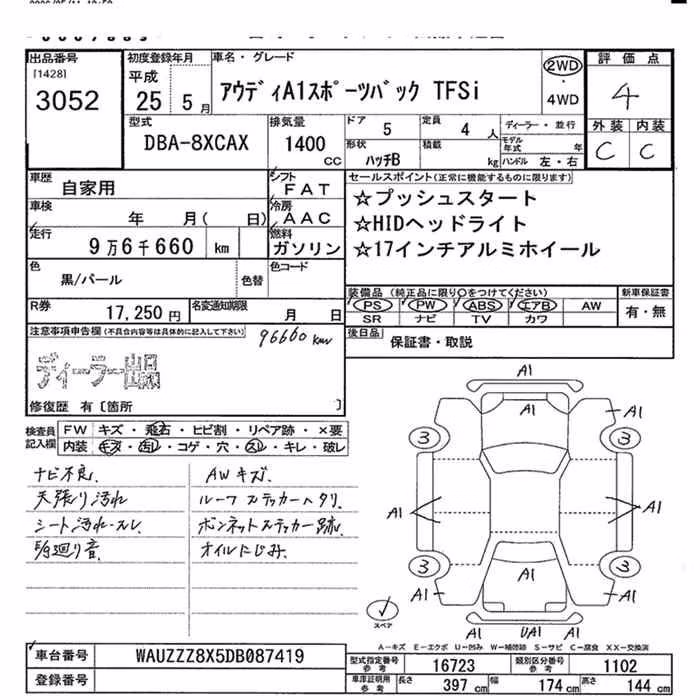 出品番号
[1428]
3052
初度登録年月
平成
25 5月
車名・グレード
アウディA1スポーツバック TFSi
2WD
・
4WD
評価点
4
外装 内装
C C
型式
DBA-8XCAX
排気量
1400
cc
ドア 5
定員 4 人
形状 ハッチB
積載 kg
ディーラー・並行
モデル年式 年
ハンドル 左・右
車歴
自家用
シフト
FAT
車検
年 月( 日)
冷房
AAC
走行
9万6千660 km
燃料
ガソリン
色
黒/パール
色替
色コード
R券
17,250円
名変通知期限
月 日
セールスポイント(正常に機能するものに限ります)
☆プッシュスタート
☆HIDヘッドライト
☆17インチアルミホイール
装備品 (純正品に限り〇をつけてください)
PS PW ABS エアB AW
SR ナビ TV カワ
新車保証書
有・無
後日品
保証書・取説
注意事項申告欄(不具合内容等は具体的に記入して下さい)
96660km
ディーラー出品
修復歴 有〔箇所 〕
検査員
記入欄
FW キズ・飛石・ヒビ割・リペア跡・×要
内装 キズ・汚レ・コゲ・穴・スレ・キレ・破レ
ナビ不良.
天張り汚れ
シート汚れ・スレ
AWキズ.
ルーフステッカーヘタリ.
ボンネットステッカー跡.
オイルにじみ.
A1
A1
A1
3
3
A1
A1
3
3
A1
A1
A1
A1
UA1
スペア
A-キズ E-エクボ U-凹み W-補修跡 S-サビ C-腐食 XX-交換済
車台番号
WAUZZZ8X5DB087419
登録番号
型式指定番号
参考
16723
類別区分番号
参考
1102
車庫証明用
参考
長さ 397 cm
幅 174 cm
高さ 144 cm